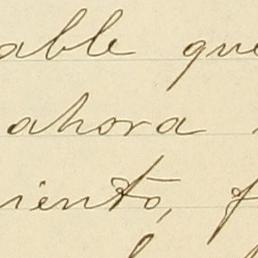 able que
ahora
iento, f